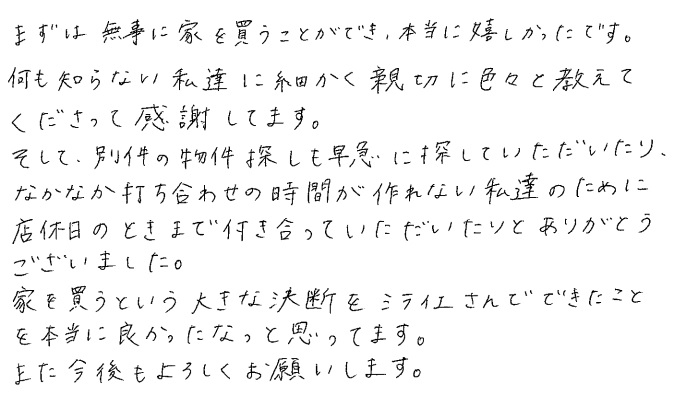 まずは無事に家を買うことができ、本当に嬉しかったです。
何も知らない私達に細かく親切に色々と教えて
くださって感謝してます。
そして、別件の物件探しも早急に探していただいたり、
なかなか打ち合わせの時間が作れない私達のために
店休日のときまで付き合っていただいたりとありがとう
ございました。
家を買うという大きな決断をミライエさんでできたこと
を本当に良かったなっと思ってます。
また今後もよろしくお願いします。